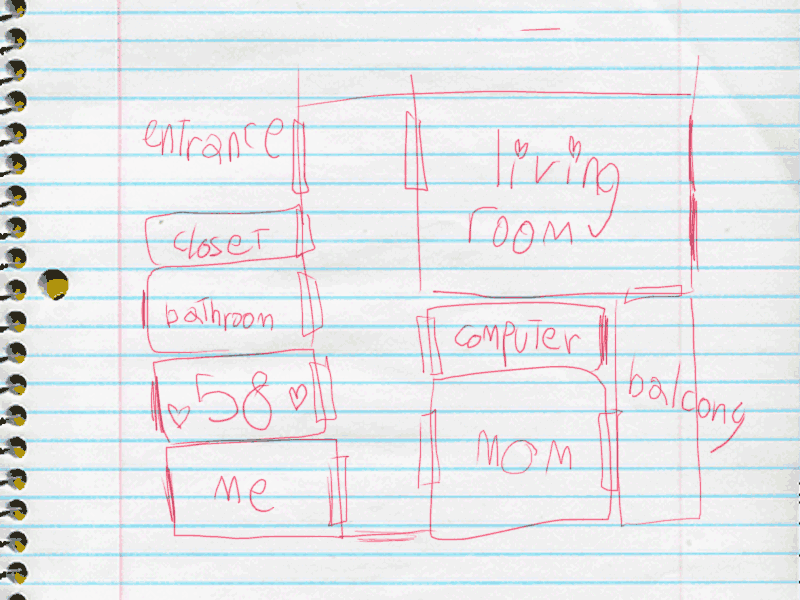 entrance
living
room
closet
bathroom
computer
58
balcony
mom
me